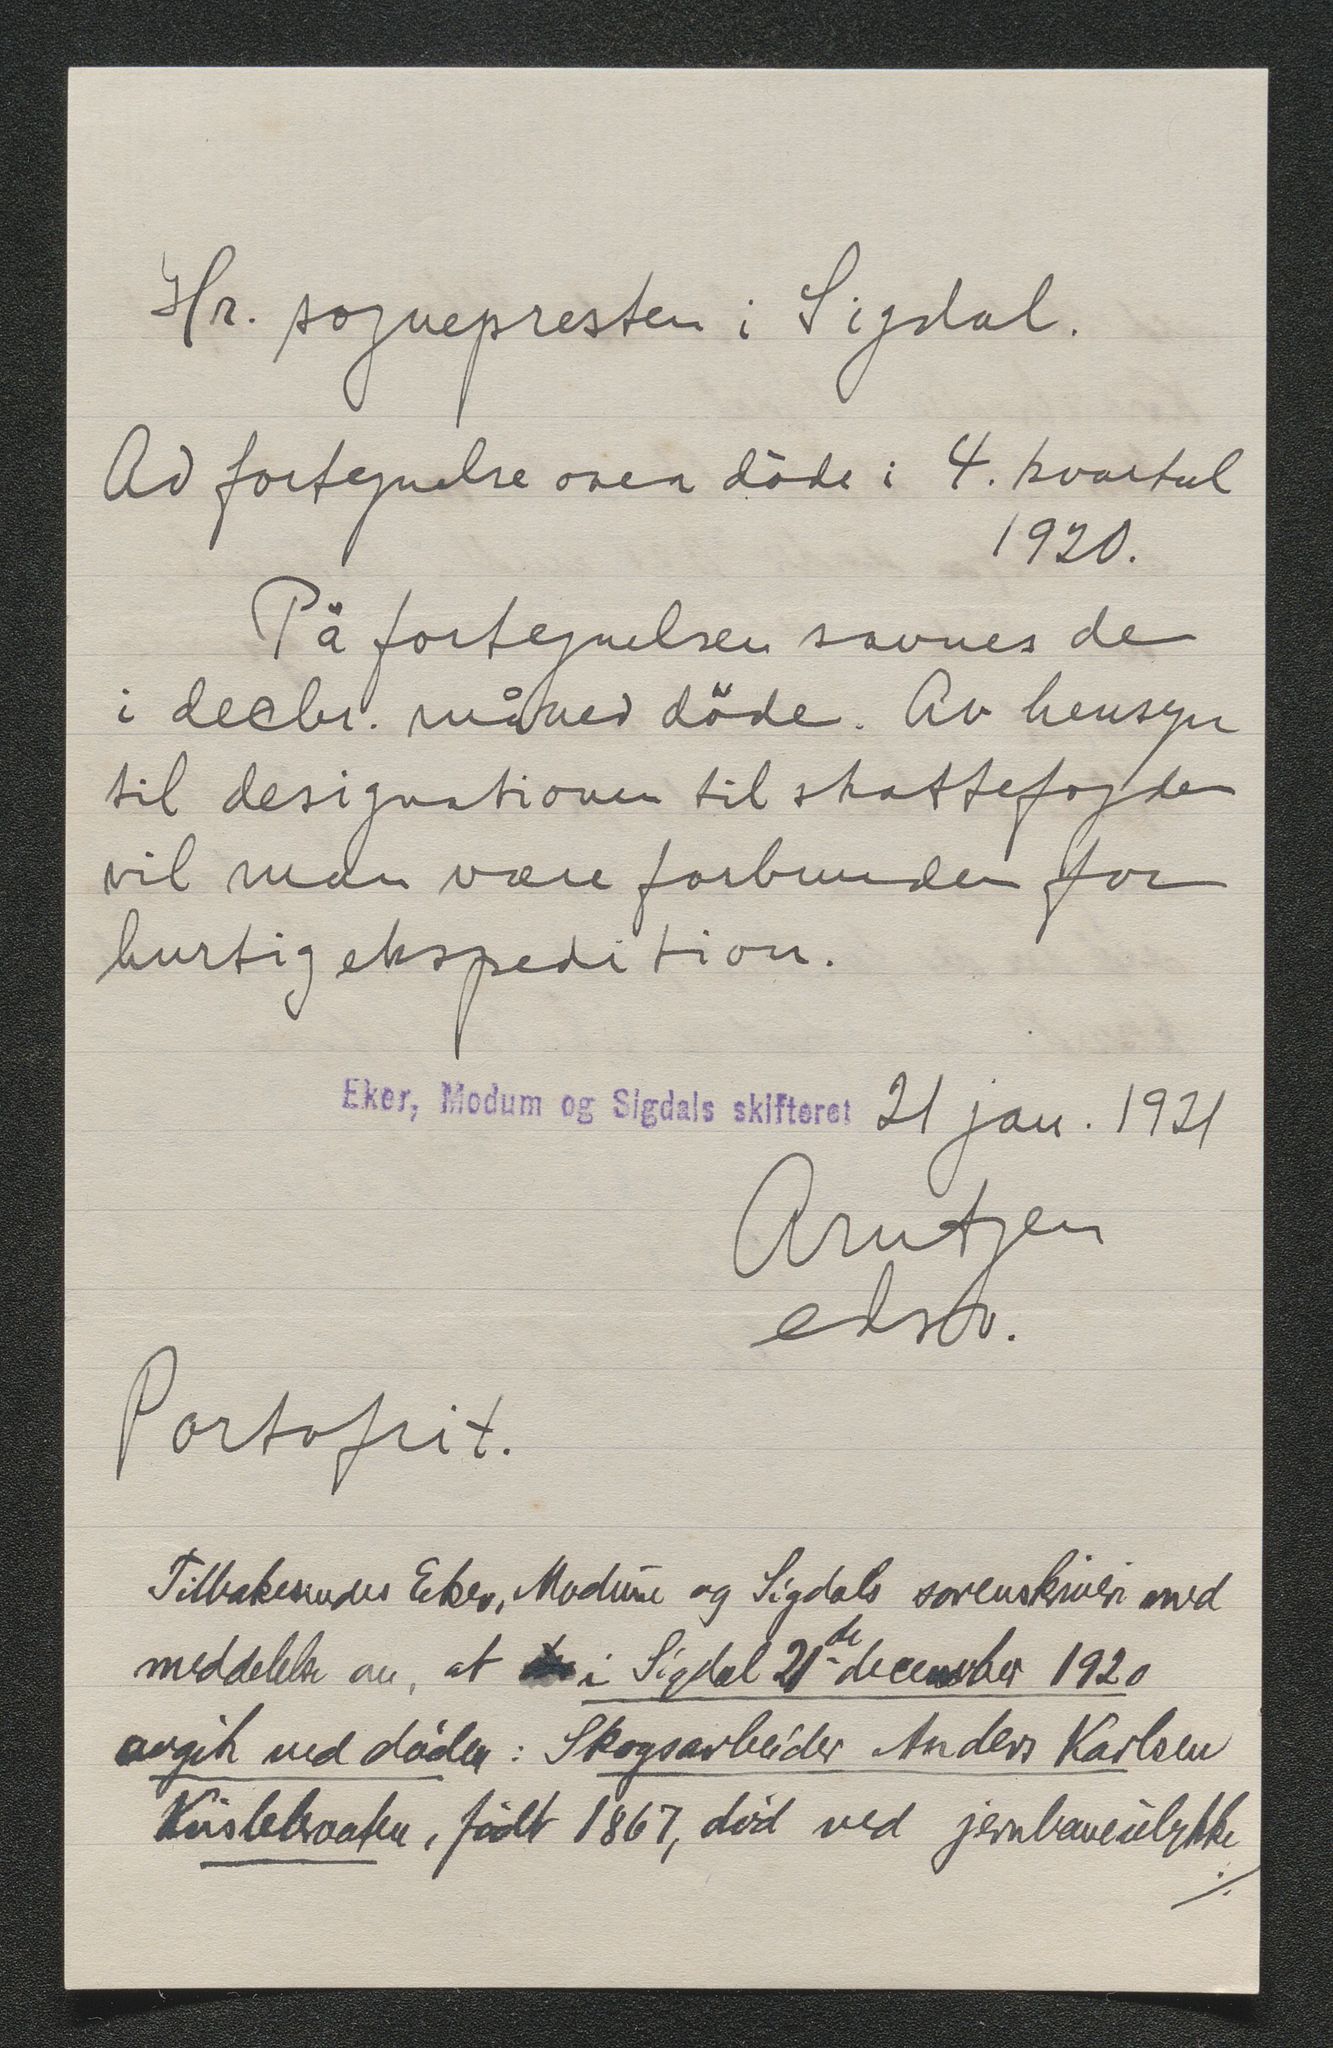 Hr. sognepresten i Sigdal.
Ad fortegnelse over döde i 4. kvartal
1920.
På fortegnelsen savnes de
i decbr. måned döde. Av hensyn
til designationen til skattefogden
vil man være forbunden for
hurtig ekspedition.
Eker, Modum og Sigdals skifteret 21 jan. 1921
Arntzen
edsv.
Portofrit.
Tilbakesendes Eker, Modum og Sigdals sorenskriveri med
meddelelse om, at i Sigdal 21de december 1920
avgik ved døden: Skogsarbeider Anders Karlsen
født 1867, død ved jernbaneulykke
./.